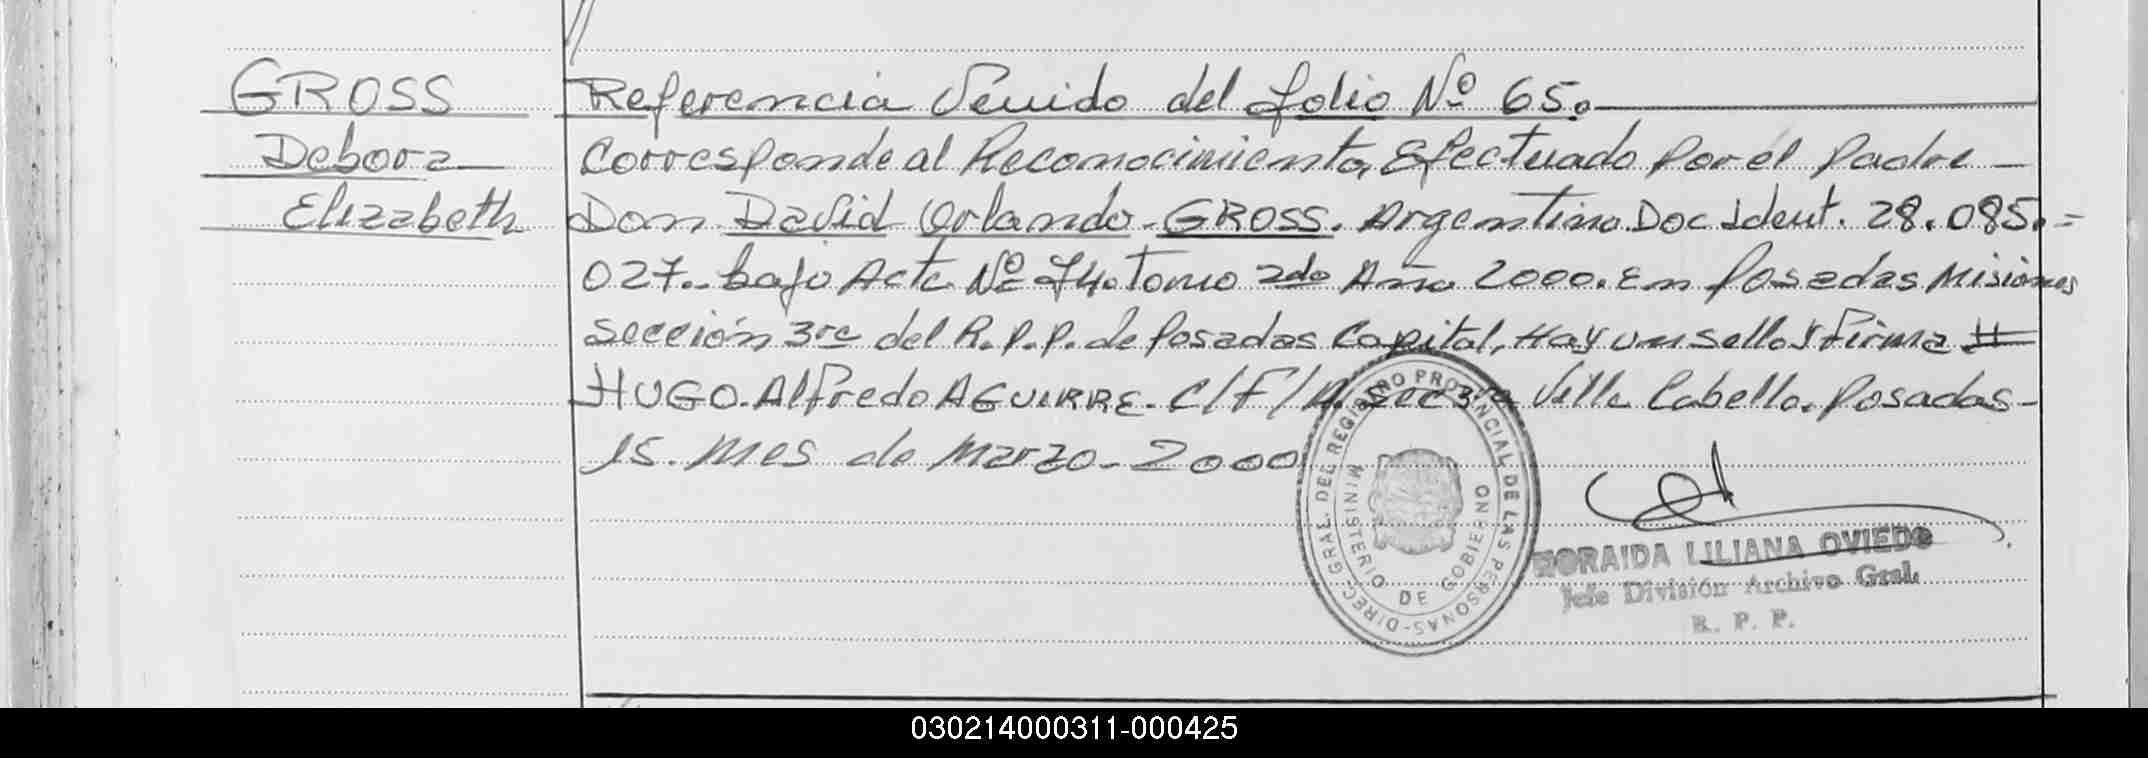 GROSS
Debora
Elizabeth
Referencia Venido del folio Nº 65.
Corresponde al Reconocimiento, Efectuado Por el Padre
Don David Orlando GROSS. Argentino. Doc Ident. 28.085.=
027.. bajo Acta Nº 74. Tomo 2do Año 2000. En Posadas Misiones
Sección 3ra del R.P.P. de Posadas Capital. Hay un sello y firma
HUGO. Alfredo AGUIRRE. C/F/A. Sec 3ra Villa Cabello. Posadas-
15. Mes de Marzo - 2000
DIREC. GRAL. DEL REGISTRO PROVINCIAL DE LAS PERSONAS
MINISTERIO DE GOBIERNO
ZORAIDA LILIANA OVIEDO
Jefe División Archivo Gral.
R. P. P.
030214000311-000425